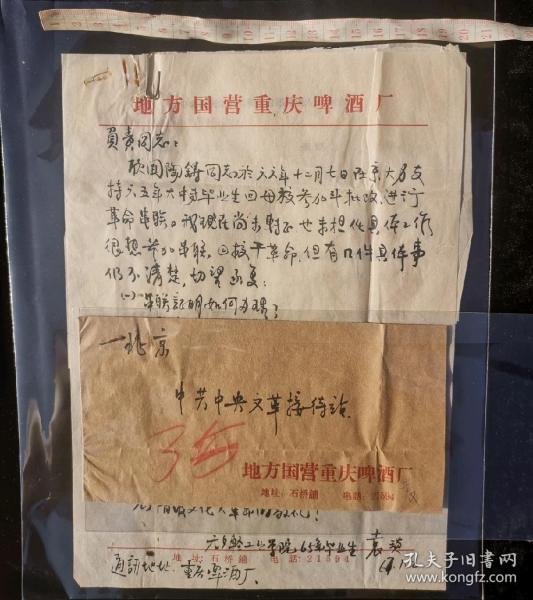 地方国营重庆啤酒厂
負責同志：
欣闻陶鋳同志於六六年十二月七日在京大力支
持六五年大专毕业生回母校参加斗批改，进行
革命串联。我现在尚未转正也未担任具体工作
很想参加串联，回校干革命，但有几件具体事
仍不清楚，切望函复：
(一) 串联証明如何办理？
北京
中共中央文革接待站
地方国营重庆啤酒厂
地址：石桥鋪 电話：21594
65年毕业生 袁
地址：石桥鋪 电話：21594
通訊地址：重庆啤酒厂。
孔夫子旧书网
kongfz.com